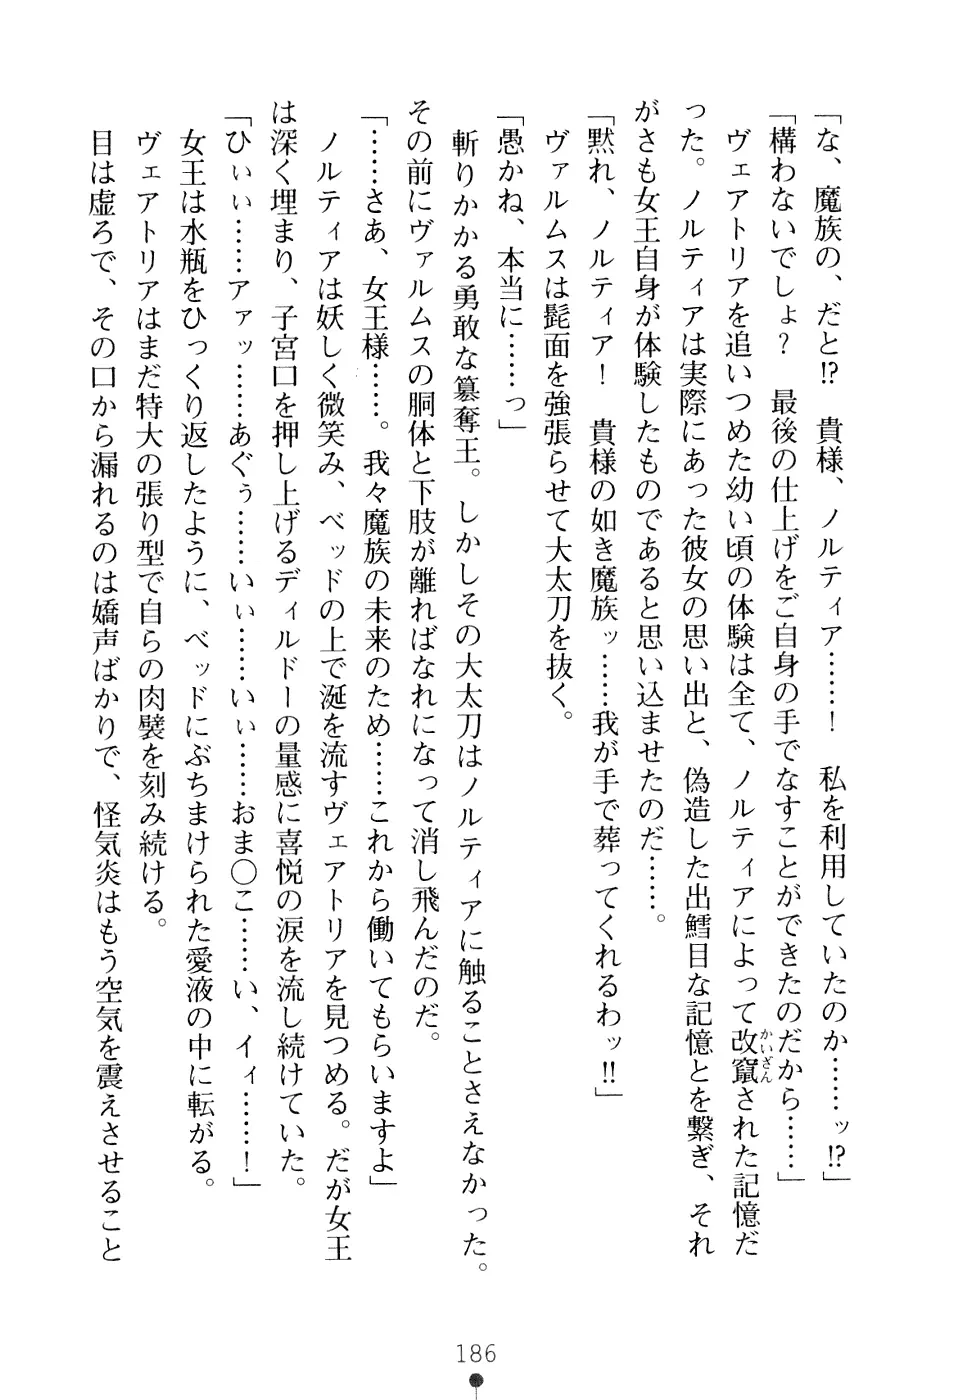 「な、魔族の、だと!?　貴様、ノルティア……！　私を利用していたのか……ッ!?」
「構わないでしょ？　最後の仕上げをご自身の手でなすことができたのだから……」
　ヴェアトリアを追いつめた幼い頃の体験は全て、ノルティアによって改竄かいざんされた記憶だ
った。ノルティアは実際にあった彼女の思い出と、偽造した出鱈目な記憶とを繋ぎ、それ
がさも女王自身が体験したものであると思い込ませたのだ……。
「黙れ、ノルティア！　貴様の如き魔族ッ……我が手で葬ってくれるわッ!!」
　ヴァルムスは髭面を強張らせて大太刀を抜く。
「愚かね、本当に……っ」
　斬りかかる勇敢な簒奪王。しかしその大太刀はノルティアに触ることさえなかった。
その前にヴァルムスの胴体と下肢が離ればなれになって消し飛んだのだ。
「……さあ、女王様……。我々魔族の未来のため……これから働いてもらいますよ」
　ノルティアは妖しく微笑み、ベッドの上で涎を流すヴェアトリアを見つめる。だが女王
は深く埋まり、子宮口を押し上げるディルドーの量感に喜悦の涙を流し続けていた。
「ひぃぃ……アァッ……あぐぅ……いぃ……いぃ……おま〇こ……い、イィ……！」
　女王は水瓶をひっくり返したように、ベッドにぶちまけられた愛液の中に転がる。
　ヴェアトリアはまだ特大の張り型で自らの肉襞を刻み続ける。
　目は虚ろで、その口から漏れるのは嬌声ばかりで、怪気炎はもう空気を震えさせること
186